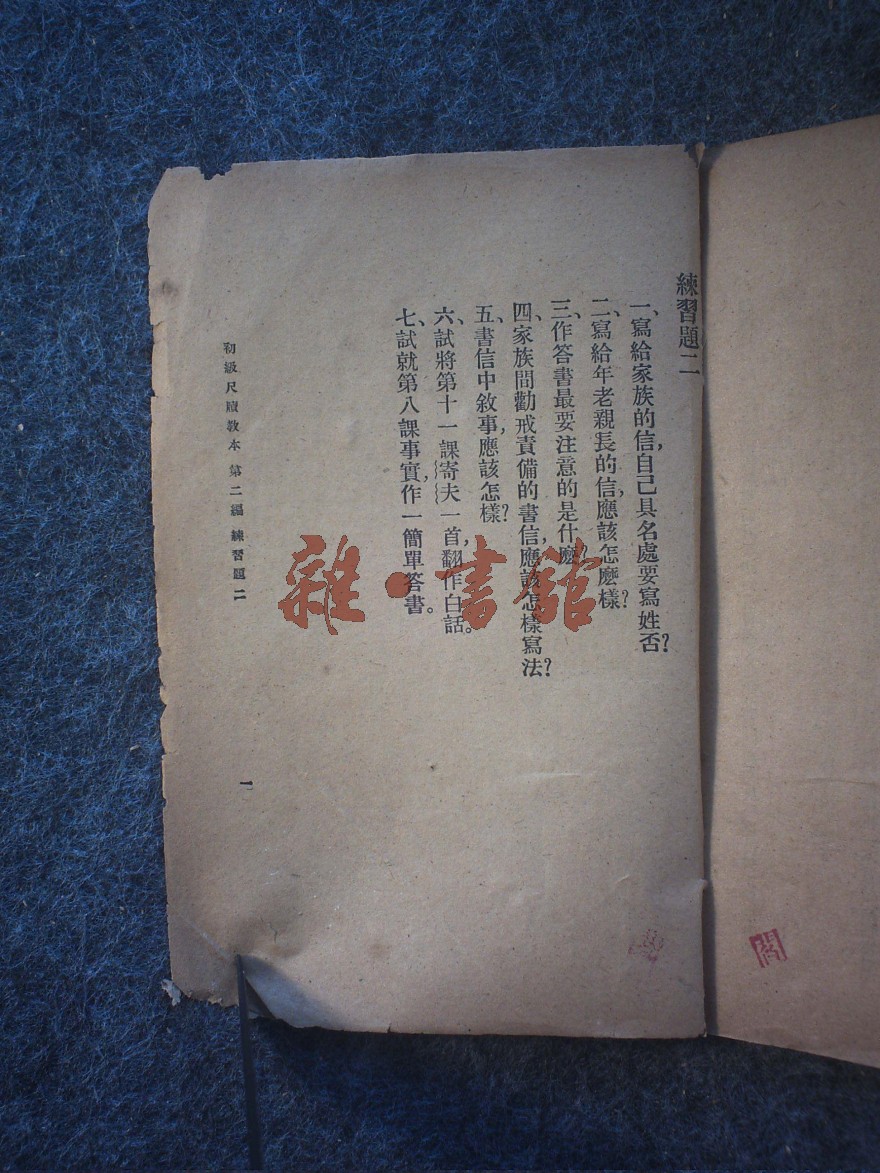 練習題二
一、寫給家族的信，自己具名處要寫姓否？
二、寫給年老親長的信，應該怎麽樣？
三、作答書最要注意的是什麽？
四、家族間勸戒責備的書信，應該怎樣寫法？
五、書信中敘事，應該怎樣？
六、試將第十一課寄夫一首，翻作白話。
七、試就第八課事實，作一簡單答書。
初級尺牘教本 第二編 練習題二
一
雜·書館